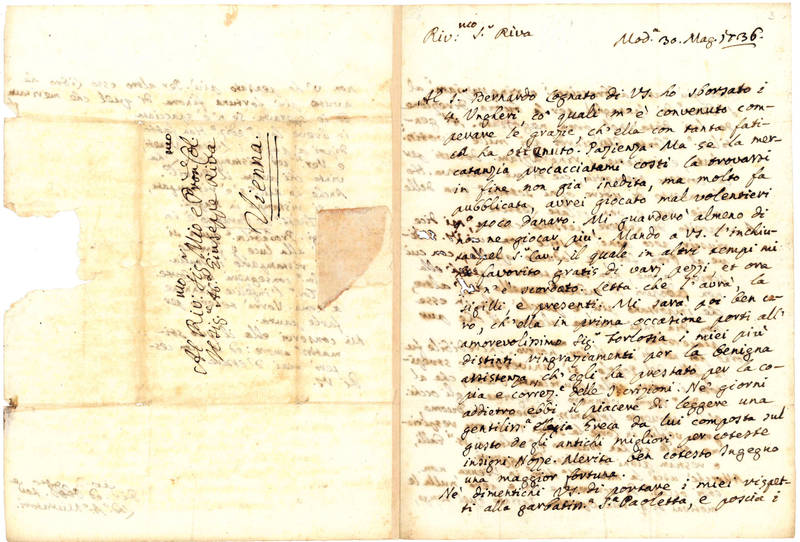 Al Riv.mo Sig.r Mio e Pron Col
Il Sig.r Ab.e Giuseppe Riva
Vienna.
Riv:mo S.r Riva
Mod.a 30. Mag. 1736.
Al S.r Bernardo legnato di VS. ho sborsato i
4. Ungheri, co' quali m'è convenuto com-
perare le grazie, ch'ella con tanta fati-
ca ha ottenuto. Pazienza. Ma se la mer-
catanzia procacciatami costì la trovassi
in fine non già inedita, ma molto fa
pubblicata, avrei giocato mal volentieri
poco danaro. Mi guarderò almeno di
non ne giocar più. Mando a VS. l'inchiu-
sa pel S.r Cav.re, il quale in altri tempi mi
favorito gratis di varj pezzi, et ora
se n'è scordato. Letta che l'avrà, la
sigilli e presenti. Mi sarà poi ben ca-
ro, ch'ella in prima occasione porti all'
amorevolissimo Sig. Forlosia i miei più
distinti ringraziamenti per la benigna
assistenza, ch'egli ha prestato per la co-
pia e correz.e delle Iscrizioni. Ne' giorni
addietro ebbi il piacere di leggere una
gentiliss.a elegia Greca da lui composta sul
gusto degli antichi migliori per coteste
insigni Nozze. Merita ben cotesto Ingegno
una maggior fortuna.
Nè dimentichi VS. di portare i miei rispet-
ti alla garbatiss.a S.ra Paoletta, e poscia i